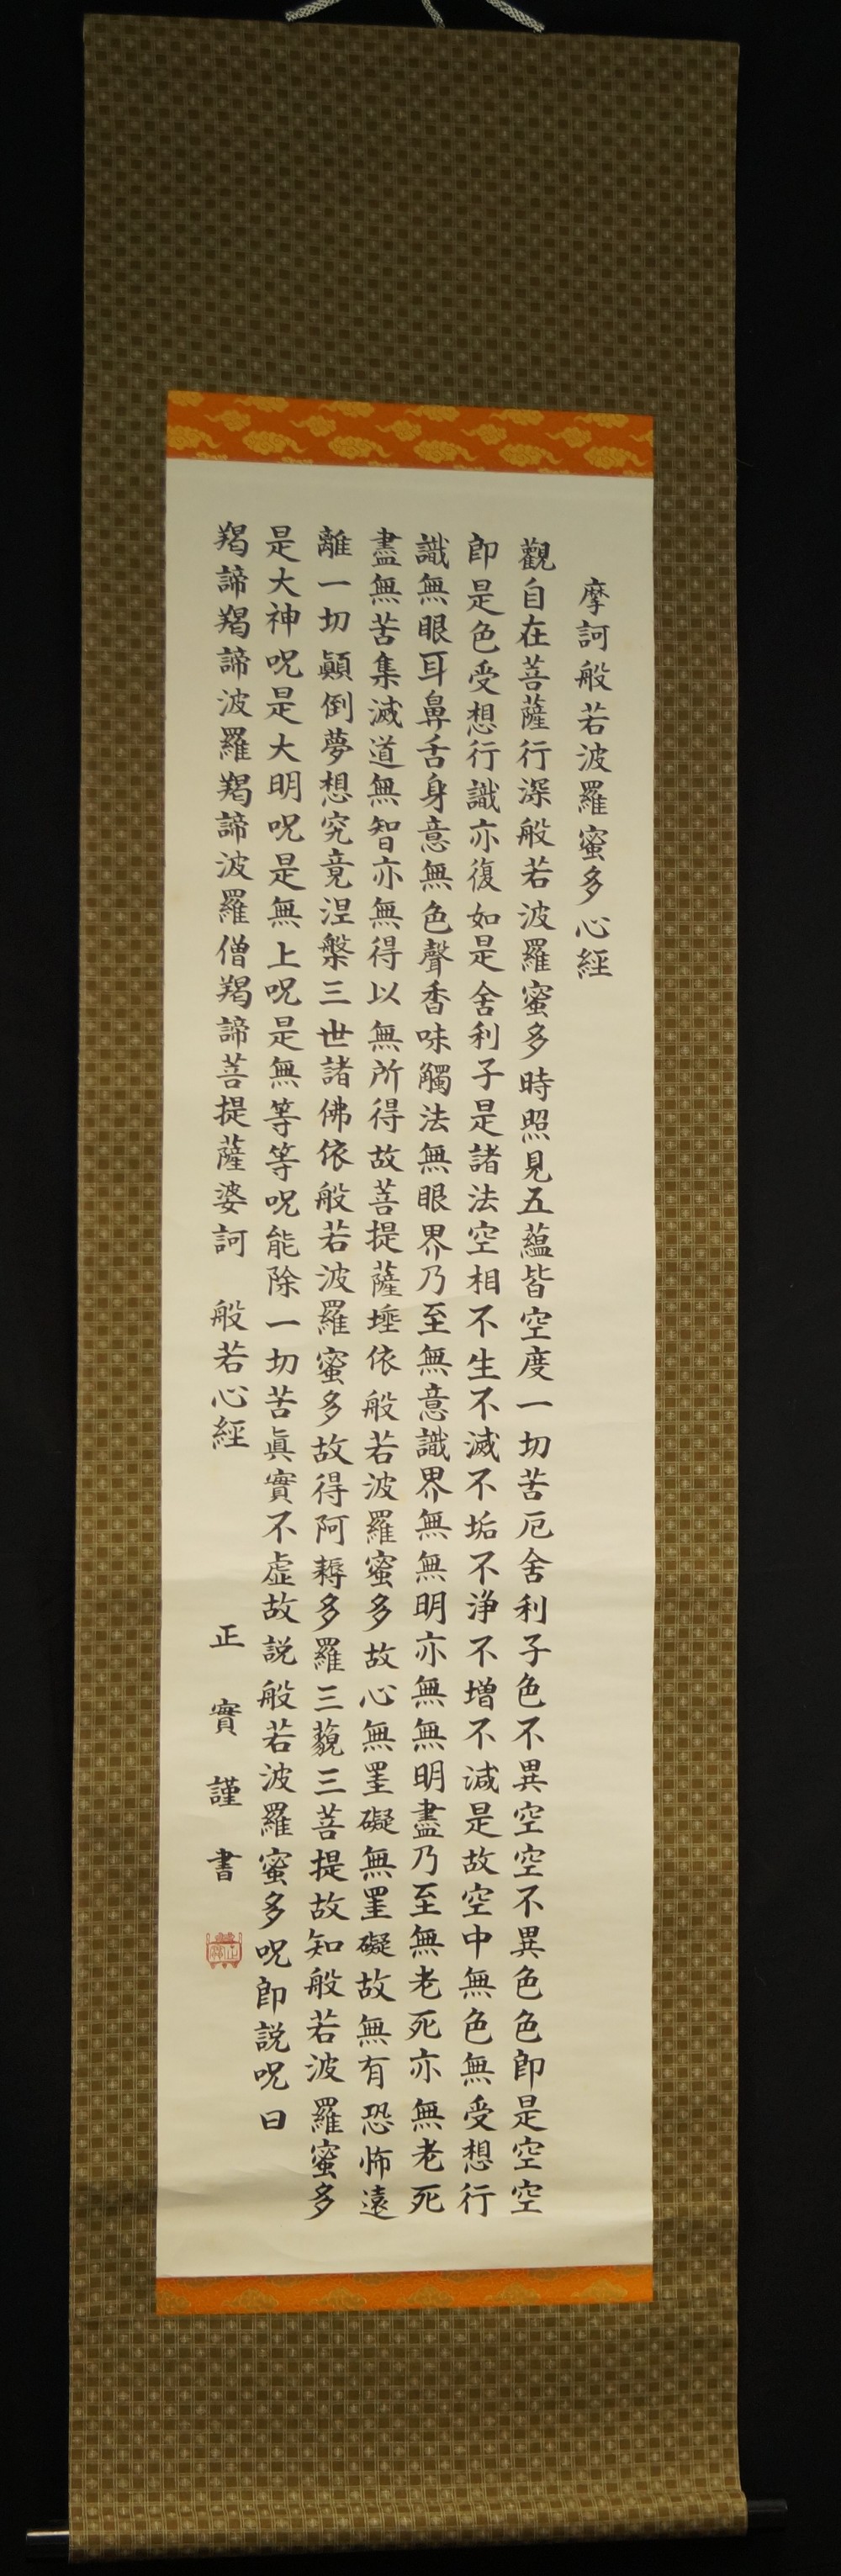 摩訶般若波羅蜜多心経
觀自在菩薩行深般若波羅蜜多時照見五蘊皆空度一切苦厄舍利子色不異空空不異色色即是空空
即是色受想行識亦復如是舍利子是諸法空相不生不滅不垢不浄不増不減是故空中無色無受想行
識無眼耳鼻舌身意無色聲香味觸法無眼界乃至無意識界無無明亦無無明盡乃至無老死亦無老死
盡無苦集滅道無智亦無得以無所得故菩提薩埵依般若波羅蜜多故心無罣礙無罣礙故無有恐怖遠
離一切顚倒夢想究竟涅槃三世諸佛依般若波羅蜜多故得阿耨多羅三藐三菩提故知般若波羅蜜多
是大神呪是大明呪是無上呪是無等等呪能除一切苦眞實不虚故説般若波羅蜜多呪即説呪曰
羯諦羯諦波羅羯諦波羅僧羯諦菩提薩婆訶　般若心経
正實謹書